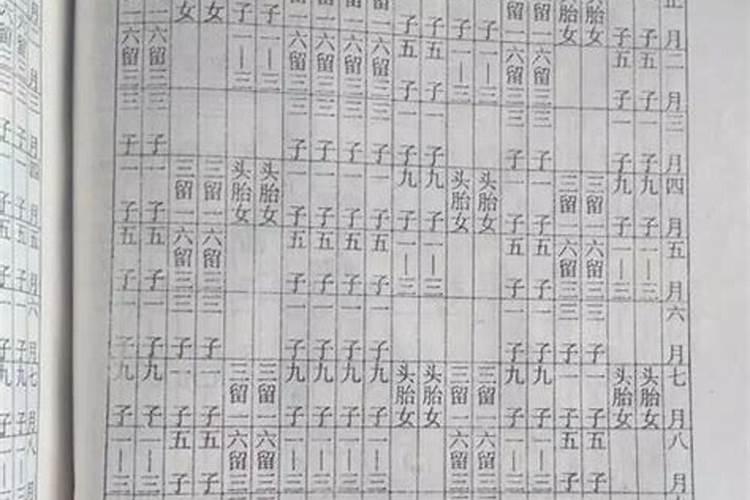 月 二月 三月 四月 五月 六月 七月 八月
子 五子 一子 九子 一｜三 头胎女
子 五子 一子 九子 一｜三 头胎女
胎女 三留一 六留三 三子 一子 五子
胎女 三留一 六留三 三子 一子 五子
留一 六留三 三子 一子 五子 一子 九子 一｜三
留一 六留三 三子 一子 五子 一子 九子 一｜三
子 一｜三 头胎女 三留一 六留三
子 一｜三 头胎女 三留一 六留三
子 五子 一子 九子 一｜三 头胎女
子 五子 一子 九子 一｜三 头胎女
一 六留三 三子 一子 五子 一子 九子 一｜三
一 六留三 三子 一子 五子 一子 九子 一｜三
一 六留三 三子 一子 五子 一子 九子 一｜三
一 六留三 三子 一子 五子 一子 九子 一｜三
子 一｜三 头胎女 三留一 六留三
子 一｜三 头胎女 三留一 六留三
女 三留一 六留三 三子 一子 五子
女 三留一 六留三 三子 一子 五子
一 六留三 三子 一子 五子 一子 九子 一｜三
一 六留三 三子 一子 五子 一子 九子 一｜三